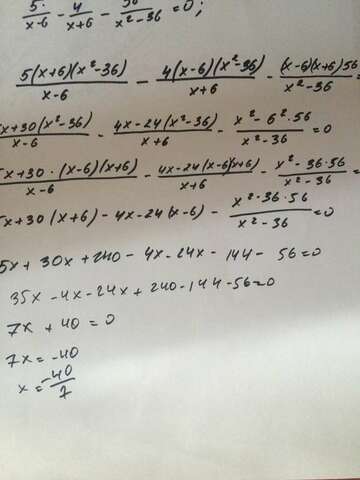 5/(x-6) - 4/(x+6) - 56/(x²-36) = 0;
5(x+6)(x²-36)/(x-6) - 4(x-6)(x²-36)/(x+6) - (x-6)(x+6)56/(x²-36) =
5x+30(x²-36)/(x-6) - 4x-24(x²-36)/(x+6) - x²-6²·56/(x²-36) = 0
5x+30·(x-6)(x+6)/(x-6) - 4x-24(x-6)(x+6)/(x+6) - x²-36·56/(x²-36) =
5x+30(x+6) - 4x-24(x-6) - x²-36·56/(x²-36) = 0
5x + 30x + 240 - 4x - 24x - 144 - 56 = 0
35x - 4x - 24x + 240 - 144 - 56 = 0
7x + 40 = 0
7x = -40
x = -40/7